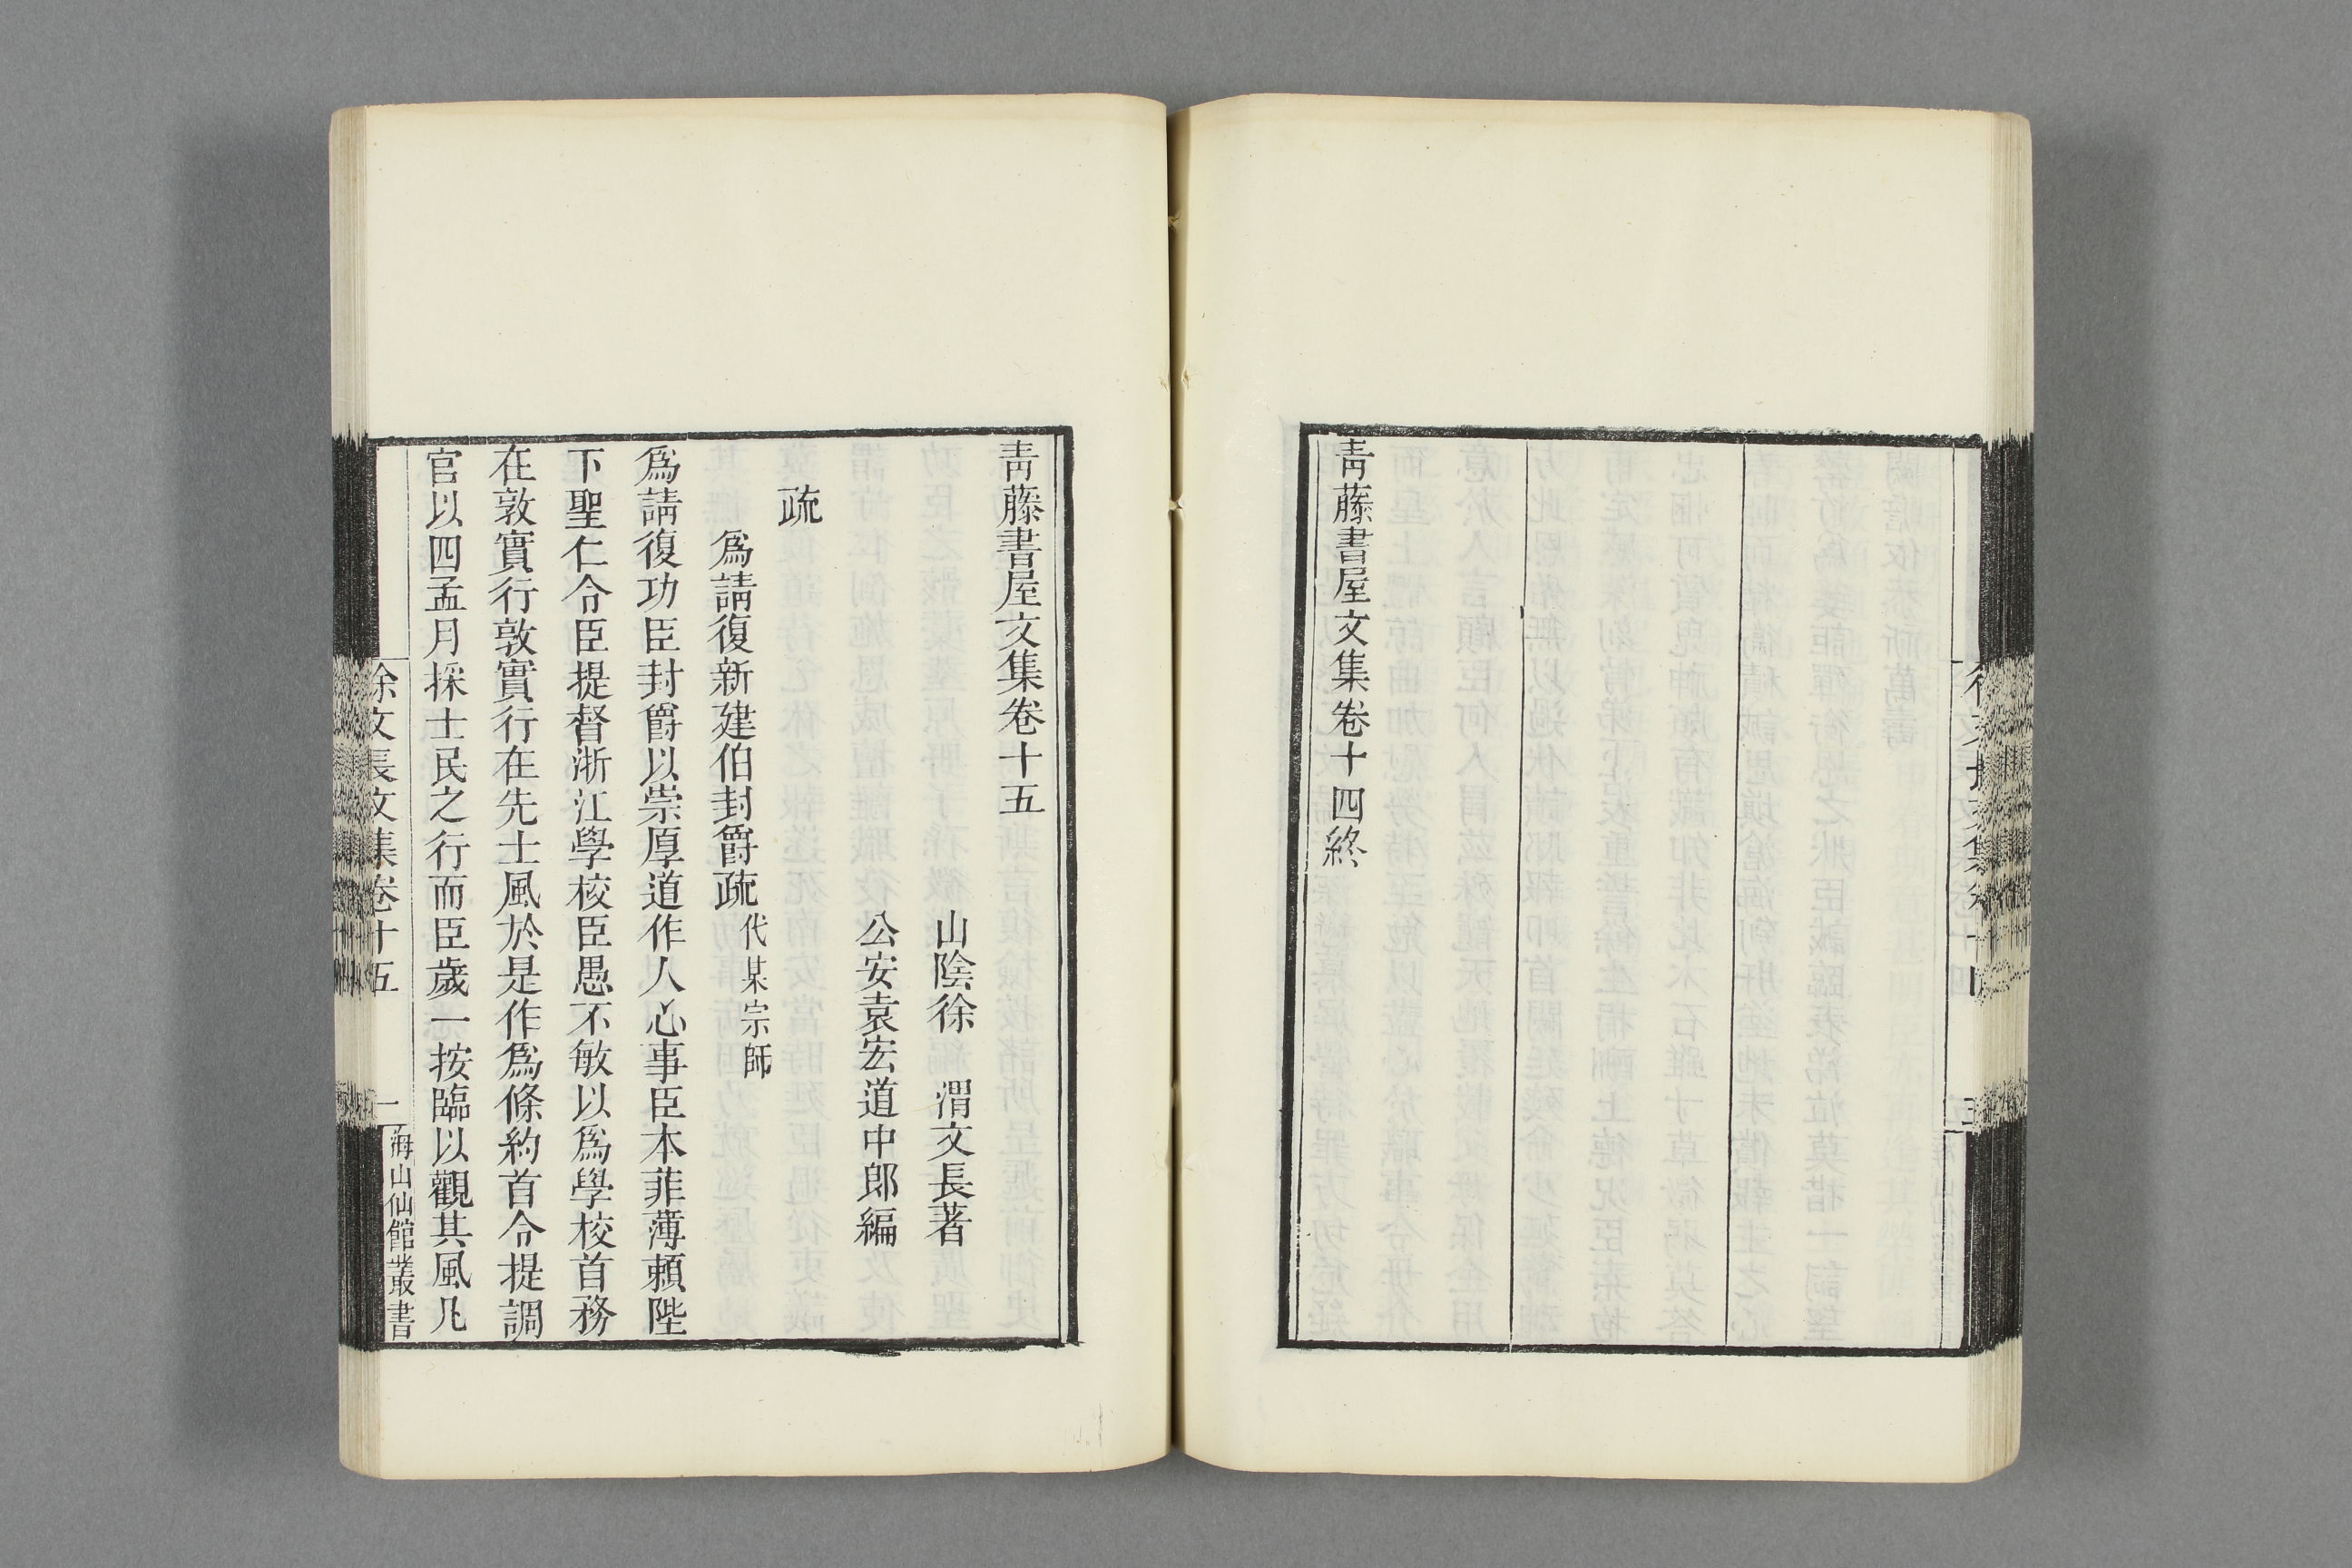 青藤書屋文集卷十四終
青藤書屋文集卷十五
山陰徐　渭文長著
公安袁宏道中郎編
疏
爲請復新建伯封爵疏代某宗師
爲請復功臣封爵以崇厚道作人心事臣本菲薄頼陛
下聖仁令臣提督浙江學校臣愚不敏以爲學校首務
在敦實行敦實行在先士風於是作爲條約首令提調
官以四孟月採士民之行而臣歲一按臨以觀其風凡
徐文長文集卷十五
一
海山仙館叢書